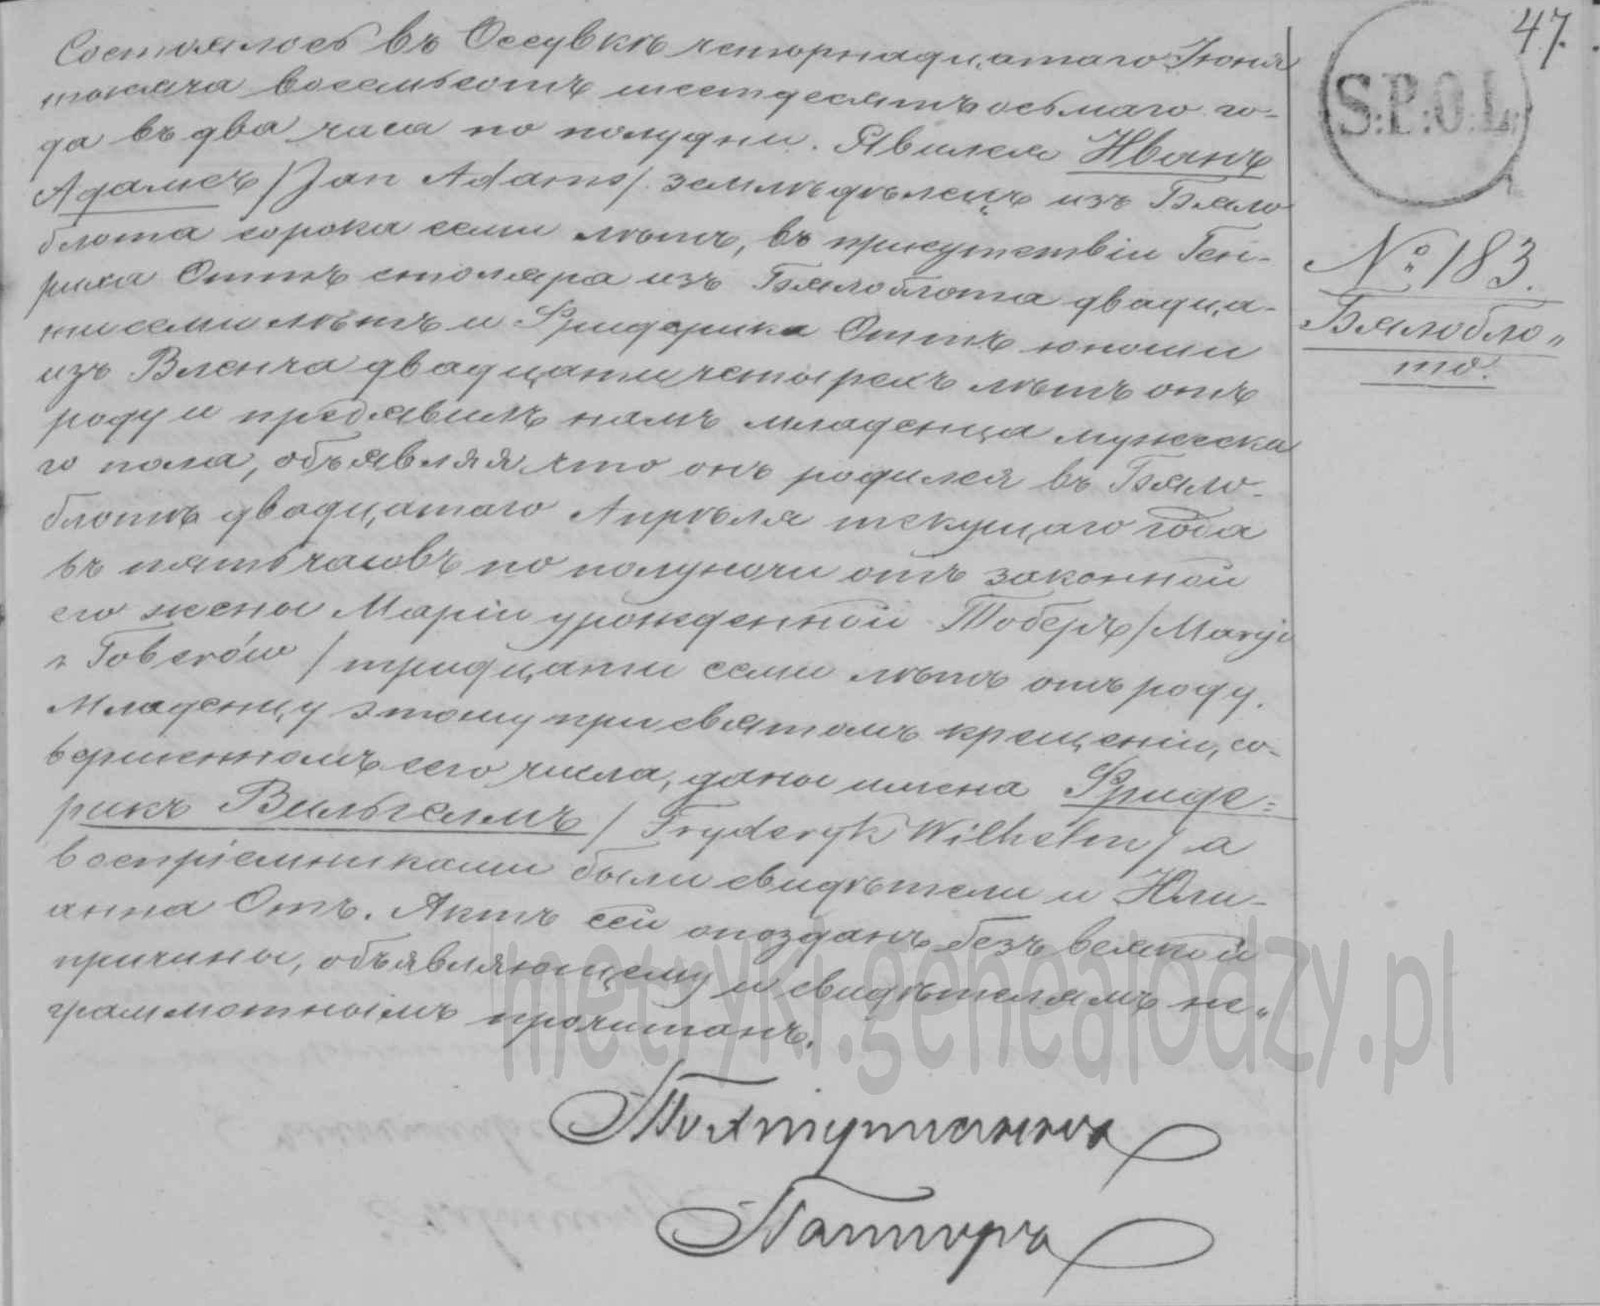 47.
S:P:O:L:
№ 183.
Бялобло„
то.
Состоялось въ Оссувкѣ четырнадцатаго Іюня
тысяча восемьсотъ шестдесятъ осьмаго го-
да въ два часа по полудни. Явился Иванъ
Адамсъ /Jan Adams/ земледѣлецъ изъ Бяло
блота сорока семи лѣтъ, въ присутствіи Ген-
риха Оттъ столяра изъ Бялоблота двадца-
ти семи лѣтъ и Фридерика Оттъ юноши
изъ Вленча двадцати четырехъ лѣтъ отъ
роду и предъявилъ намъ младенца мужеска
го пола, объявляя что онъ родился въ Бяло-
блотѣ двадцатаго Апрѣля текущаго года
въ пять часовъ по полуночи отъ законной
его жены Маріи урожденной Тоберъ /Maryi
z Toberów/ тридцати семи лѣтъ отъ роду.
Младенцу этому при святомъ крещеніи, со-
вершенномъ сего числа, даны имена Фриде=
рикъ Вильгельмъ /Fryderyk Wilhelm/ а
воспріемниками были свидѣтели и Юли-
анна Отъ. Актъ сей опозданъ безъ всякой
причины, объявляющему и свидѣтелямъ не„
грамотнымъ прочитанъ.
Пасторъ
metryki.genealodzy.pl